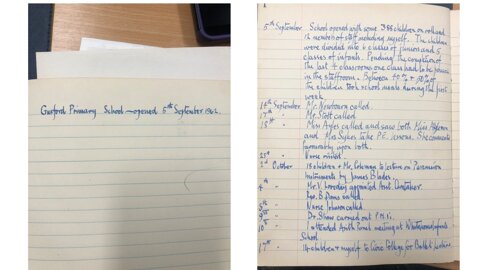 Gusford Primary School - opened 5th September 1962.
1
5th September School opened with some 388 children on roll and
members of staff including myself. The children
were divided into 6 classes of juniors and 5
classes of infants. Pending the completion of
the last 4 classrooms one class had to be housed
in the staffroom. Between 40% & 50% of
the children took school meals during the first
week.
September Mr. called.
17th " Mr. Stott called.
18th " Miss called and saw both Miss
and Mrs Sykes take P.E. lessons. She commented
favourably upon both.
" Nurse visited.
October 18 children & Mr. Coleman to lecture on Percussion
Instruments by James Blades.
" Mr. V. appointed Asst. Caretaker.
" called.
" Nurse called.
" Dr. Shaw carried out
10th " Attended meeting at Infants
School
17th " 14 children & myself to Civic College for Ballet Lecture